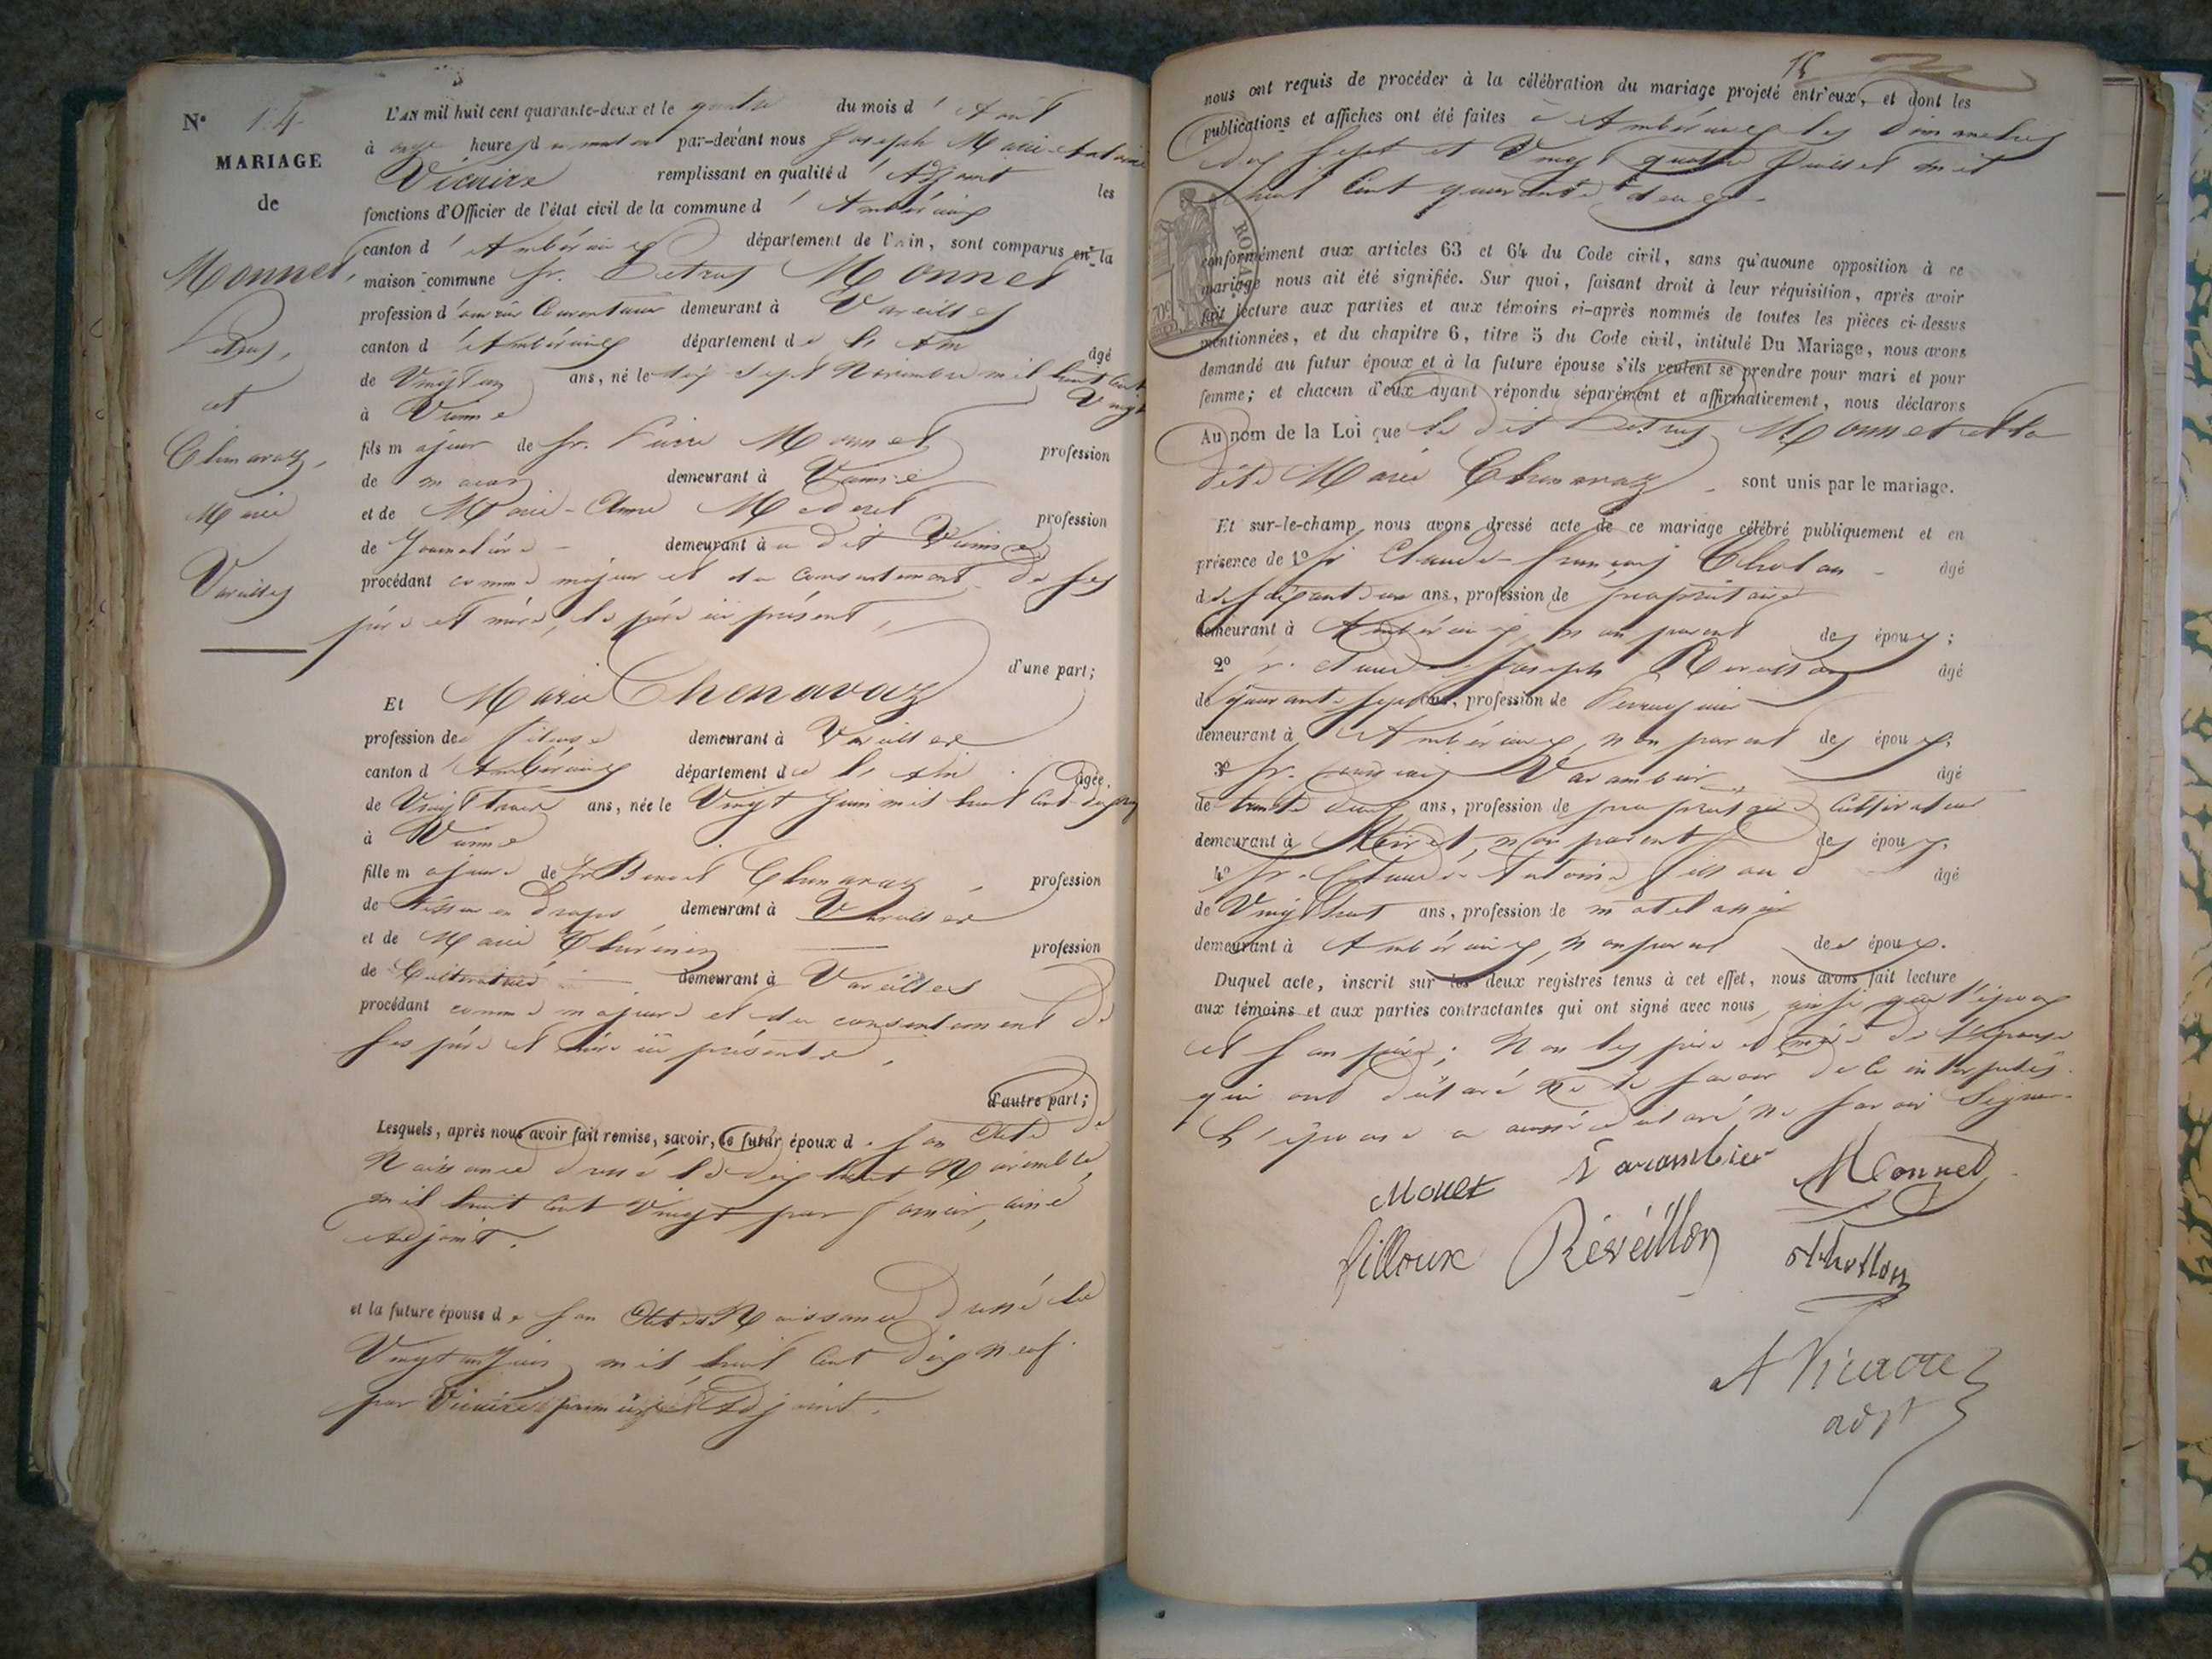 N° 14
MARIAGE
de
Monnet,
Petrus,
et
Chenavaz,
Marie
Vareilles
L'AN mil huit cent quarante-deux et le quatre du mois d'Août
à onze heures du matin par-devant nous Joseph Marie Antoine
Vicaire remplissant en qualité d'Adjoint les
fonctions d'Officier de l'état civil de la commune d'Ambérieux
canton d'Ambérieux département de l'Ain, sont comparus en la
maison commune Sr. Petrus Monnet
profession d'ouvrier demeurant à Vareilles
canton d'Ambérieux département de l'Ain âgé
de Vingt un ans, né le dix Sept Novembre mil huit Cent Vingt
à Vienne
fils majeur de Sr. Pierre Monnet profession
de maçon demeurant à Vienne
et de Marie-Anne profession
de Journalière demeurant au dit Vienne
procédant comme majeur et du consentement de ses
père et mère, le père ici présent,
d'une part;
Et Marie Chenavaz
profession de fileuse demeurant à Vareilles
canton d'Ambérieux département de l'Ain âgée
de Vingt trois ans, née le Vingt Juin mil huit Cent dix neuf
à Vienne
fille majeure de Sr. Benoit Chenavaz profession
de tisseur en Draps demeurant à Vareilles
et de Marie profession
de Cultivatrice demeurant à Vareilles
procédant comme majeure et du consentement de
ses père et mère ici présents,
d'autre part;
Lesquels, après nous avoir fait remise, savoir, le futur époux de son Acte de
Naissance dressé le dix huit Novembre
mil huit Cent Vingt par ainé
Adjoint.
et la future épouse de son Acte de Naissance dressé le
Vingt un Juin mil huit Cent Dix neuf
par premier Adjoint.
15
nous ont requis de procéder à la célébration du mariage projeté entr'eux, et dont les
publications et affiches ont été faites à Ambérieux les Dimanches
dix sept et Vingt quatre Juillet mil
huit Cent quarante deux.
ROYAL
conformément aux articles 63 et 64 du Code civil, sans qu'aucune opposition à ce
mariage nous ait été signifiée. Sur quoi, faisant droit à leur réquisition, après avoir
fait lecture aux parties et aux témoins ci-après nommés de toutes les pièces ci-dessus
mentionnées, et du chapitre 6, titre 5 du Code civil, intitulé Du Mariage, nous avons
demandé au futur époux et à la future épouse s'ils veulent se prendre pour mari et pour
femme; et chacun d'eux ayant répondu séparément et affirmativement, nous déclarons
Au nom de la Loi que le dit Petrus Monnet et la
dite Marie Chenavaz sont unis par le mariage.
Et sur-le-champ nous avons dressé acte de ce mariage célébré publiquement et en
présence de 1° Sr Claude-François Thollon âgé
de ans, profession de propriétaire
demeurant à Ambérieux, non parent des époux;
2° Sr. Claude Joseph Réveillon âgé
de quarante sept ans, profession de Perruquier
demeurant à Ambérieux, non parent des époux;
3° Sr. François Varambier âgé
de trente deux ans, profession de propriétaire Cultivateur
demeurant à non parent des époux;
4° Sr. Claude Antoine Filloux âgé
de Vingt huit ans, profession de matelassier
demeurant à Ambérieux, non parent des époux.
Duquel acte, inscrit sur les deux registres tenus à cet effet, nous avons fait lecture
aux témoins et aux parties contractantes qui ont signé avec nous, ainsi que l'époux
et son père; Non les père et mère de l'épouse
qui ont déclaré ne le savoir de ce interpellés.
L'épouse a aussi déclaré ne savoir Signer.
Monet Varambier Monnet
filloux Réveillon Thollon
A Vicaire
adjt